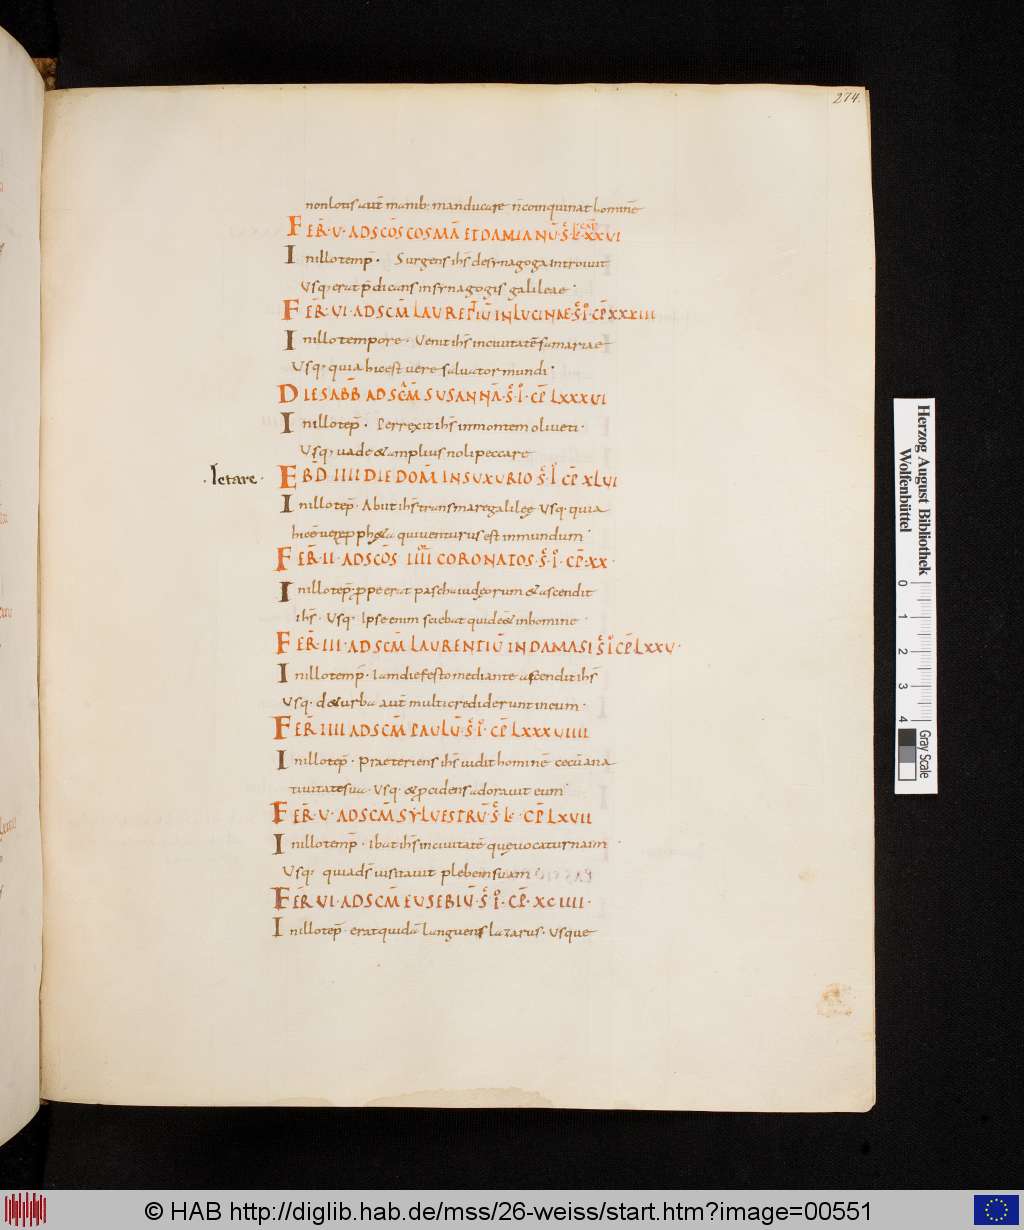 274.
non lotis aut̄ manib: manducare n̄ coinquinat hominē
FER̄·V·AD SCŌS COSMĀ ET DAMIANŪ·S̄·L̄·CAP XXVI
In illo temp̄· Surgens ih̄s de synagoga introiuit
Usq· erat p̄dicans in synagogis galileae·
FER̄·VI·AD SCM̄ LAURETIŪ IN LUCINAE·S̄·IO·CP̄ XXXIII
In illo tempore· Venit ih̄s in ciuitatē samariae
Usq· quia hic est uere saluator mundi·
DIE SABB̄ AD SCĀM SUSANNĀ·S̄·IO·CP̄ LXXXVI
In illo tep̄· Perrexit ih̄s in montem oliueti·
Usq· uade & amplius noli peccare
·letare·
EBD̄ IIII DIE DOM̄ IN SUXURIO S̄·IO CP̄ XLVI
In illo tep̄· Abiit ih̄s trans mare galileę Usq· quia
hic ē uere pph&a qui uenturus est in mundum·
FER̄·II·AD SCŌS IIII CORONATOS·S̄·IO·CP̄·XX·
In illo tep̄· ppe erat pascha iudęorum & ascendit
ih̄s· Usq· Ipse enim sciebat quid ēet in homine·
FER̄·III·AD SCM̄ LAURENTIŪ IN DAMASI S̄ IO CP̄ LXXV·
In illo temp̄· Iam die festo mediante ascendit ih̄s
Usq· de turba aut̄ multi crediderunt in eum·
FER̄ IIII AD SCM̄ PAULŪ·S̄·IO· CP̄ LXXXVIIII
In illo tep̄· Praeteriens ih̄s uidit hominē cecū a na
tiuitate sua· Usq· & pcidens adorauit eum·
FER̄·V·AD SCM̄ SYLUESTRŪ·S̄ L̄· CP̄ LXVII
In illo temp̄· Ibat ih̄s in ciuitatē quę uocatur naim
Usq· quia ds̄ uisitauit plebem suam
FER̄ VI·AD SCM̄ EUSEBIŪ·S̄ IO·CP̄·XCIIII·
In illo tep̄· erat quidā languens lazarus· Usque
Herzog August Bibliothek
Wolfenbüttel
0 1 2 3 4
Gray Scale
© HAB http://diglib.hab.de/mss/26-weiss/start.htm?image=00551